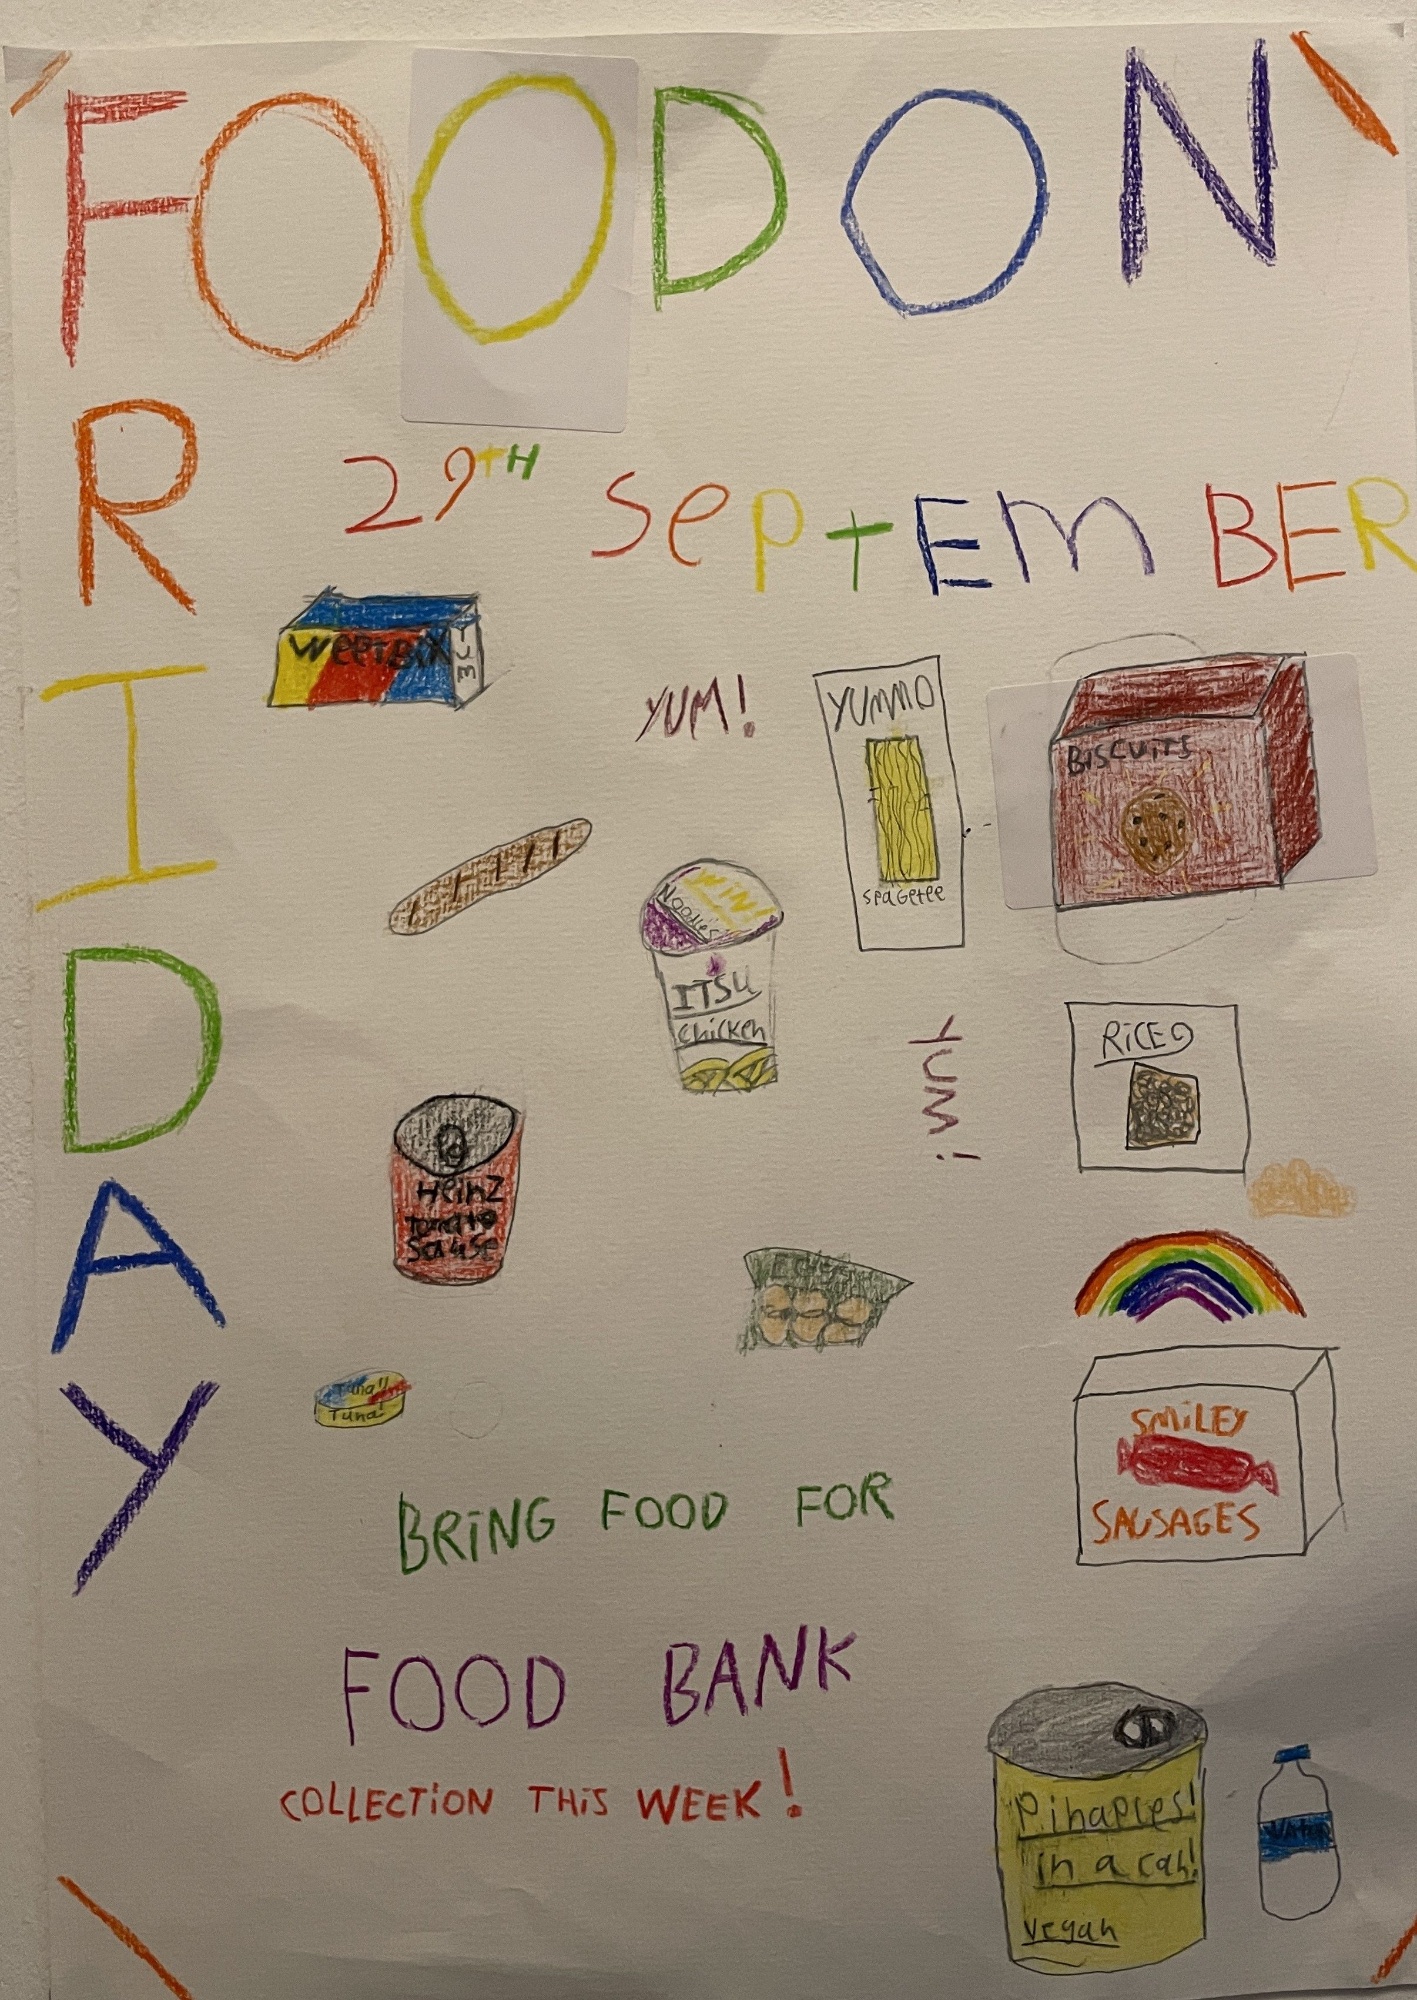 FOOD ON
FRIDAY
29TH SEPTEMBER
WEETBIX
YUM
YUM!
YUMMO
SPAGETEE
BISCUITS
WIN!
Noodles
ITSU
chicken
YUM!
RICE
Heinz
Tomato
Sause
Tuna!!
Tuna!
SMiLEY
SAUSAGES
BRiNG FOOD FOR
FOOD BANK
COLLECTiON THiS WEEK!
Pinaples!
in a can!
vegan
WATER